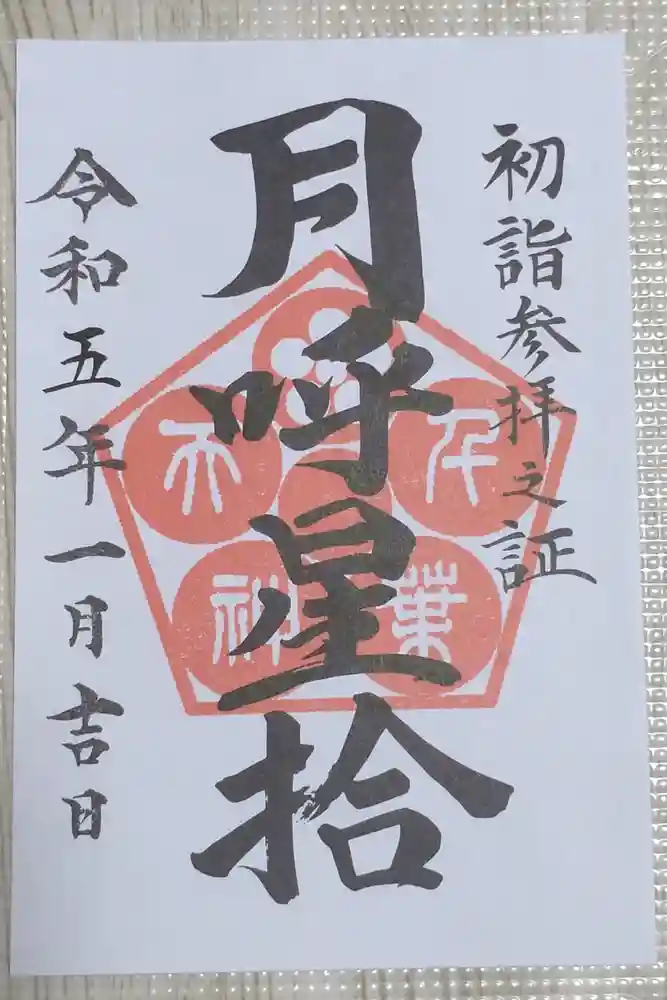 初詣参拝之証
月呼星拾
千葉天神
令和五年一月吉日